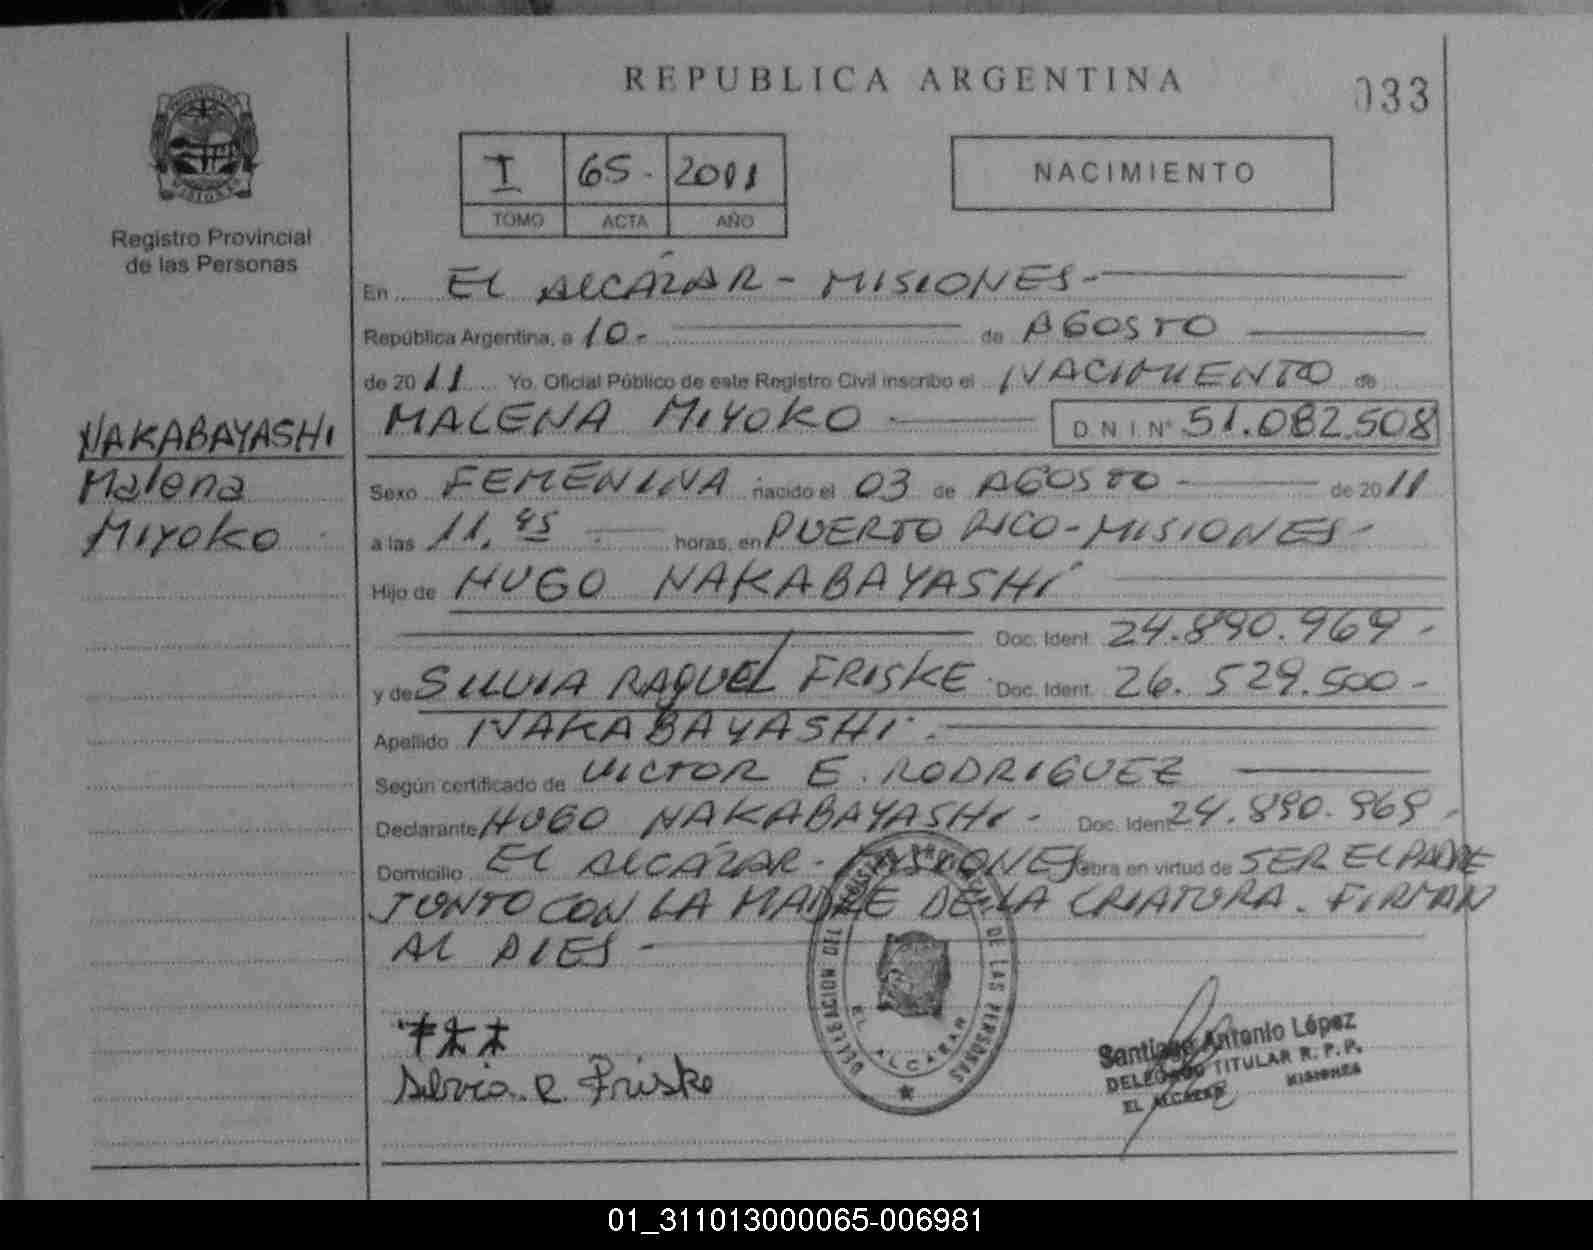 REPUBLICA ARGENTINA
033
I 65- 2011
TOMO ACTA AÑO
NACIMIENTO
PROVINCIA DE MISIONES
Registro Provincial
de las Personas
En EL ALCÁZAR - MISIONES -
República Argentina, a 10.- de AGOSTO
de 2011 Yo. Oficial Público de este Registro Civil inscribo el NACIMIENTO de
MALENA MIYOKO D.N.I. Nº 51.082.508
NAKABAYASHI
Malena
Miyoko
Sexo FEMENINA nacido el 03 de AGOSTO - de 2011
a las 11,45 horas, en PUERTO RICO - MISIONES -
Hijo de HUGO NAKABAYASHI
Doc. Ident. 24.890.969 -
y de SILVIA RAQUEL FRISKE Doc. Ident. 26.529.500 -
Apellido NAKABAYASHI.
Según certificado de VICTOR E. RODRIGUEZ
Declarante HUGO NAKABAYASHI - Doc. Ident 24.890.969 -
Domicilio EL ALCÁZAR - MISIONES obra en virtud de SER EL PADRE
JUNTO CON LA MADRE DE LA CRIATURA. FIRMAN
AL PIES -
DELEGACION DEL REGISTRO PROVINCIAL DE LAS PERSONAS
EL ALCAZAR
Silvia R. Friske
Santiago Antonio López
DELEGADO TITULAR R. P. P.
EL ALCAZAR MISIONES
01_311013000065-006981